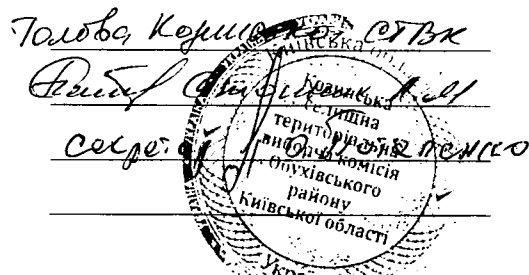 Голова Козинської СТВК
А.М
секретар О Потапенко
Київська обл.
Козинська
селищна
територіальна
виборча комісія
Обухівського
району
Київської області
Укра